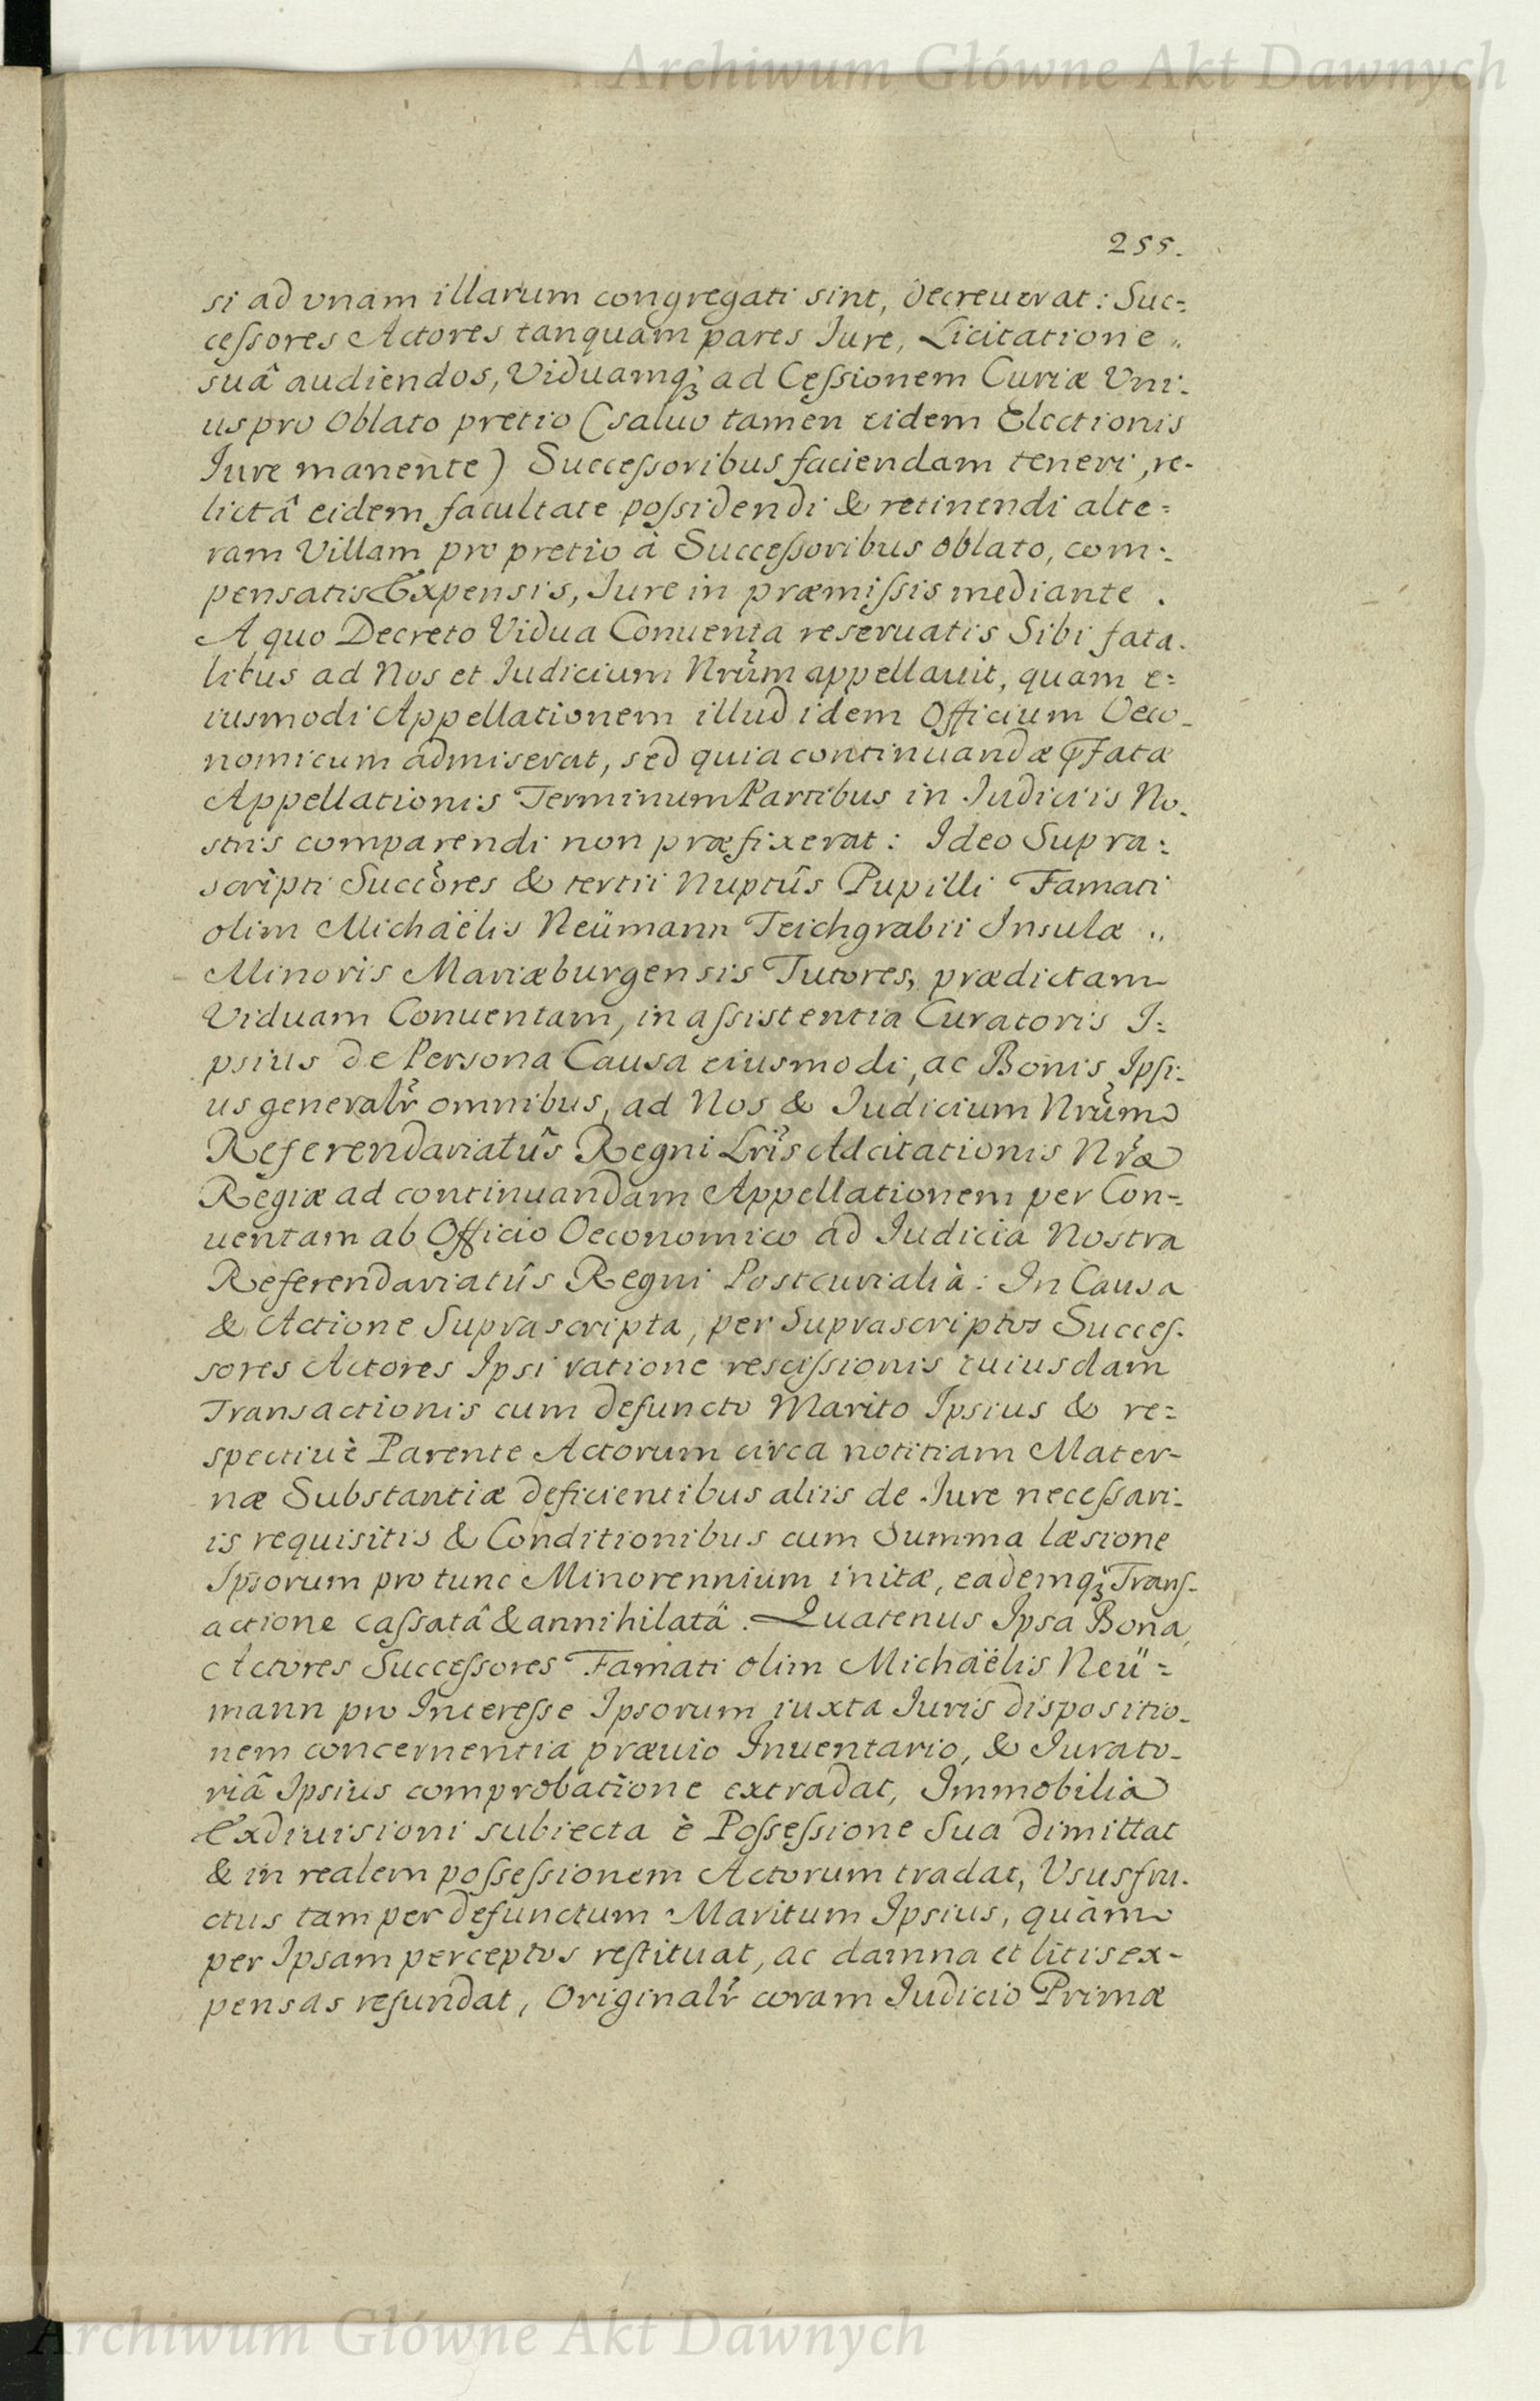 Archiwum Główne Akt Dawnych
255.
si ad vnam illarum congregati sint, decreuerat: Suc=
ceſsores Actores tanquam pares Iure, Licitatione
suâ audiendos, Viduamq; ad Ceſsionem Curiæ Vni-
us pro Oblato pretio (saluo tamen eidem Electionis
Iure manente) Succeſsoribus faciendam teneri, re-
lictâ eidem facultate poſsidendi & retinendi alte=
ram Villam pro pretio à Succeſsoribus oblato, com=
pensatis Expensis, Iure in præmiſsis mediante.
A quo Decreto Vidua Conuenta reseruatis Sibi fata-
libus ad Nos et Iudicium Nrũm appellauit, quam e=
iusmodi Appellationem illud idem Officium Oeco-
nomicum admiserat, sed quia continuandæ p̃fatæ
Appellationis Terminum Partibus in Iudiciis No-
stris comparendi non præfixerat: Ideo Supra=
scripti Succõres & tertii Nuptûs Pupilli Famati
olim Michaëlis Neümann Teichgrabii Insulæ
Minoris Mariæburgensis Tutores, prædictam
Viduam Conuentam, in aſsistentia Curatoris I=
psius de Persona Causa eiusmodi, ac Bonis Ipsi-
us generalr̃ omnibus, ad Nos & Iudicium Nrũm
Referendariatûs Regni Lrĩs Adcitationis Nræ̃
Regiæ ad continuandam Appellationem per Con-
uentam ab Officio Oeconomico ad Iudicia Nostra
Referendariatûs Regni Postcurialia: In Causa
& Actione Suprascripta, per Suprascriptos Succeſ-
sores Actores Ipsi ratione resciſsionis cuiusdam
Transactionis cum defuncto Marito Ipsius & re=
spectiuè Parente Actorum circa notitiam Mater-
næ Substantiæ deficientibus aliis de Iure neceſsari-
is requisitis & Conditionibus cum Summa læsione
Ipsorum pro tunc Minorennium initæ, eademq; Tranſ-
actione caſsatâ & annihilatâ. Quatenus Ipsa Bona
Actores Succeſsores Famati olim Michaëlis Neü=
mann pro Intereſse Ipsorum iuxta Iuris dispositio-
nem concernentia præuio Inuentario, & Iurato-
riâ Ipsius comprobatione extradat, Immobilia
Exdiuisioni subiecta è Poſseſsione Sua dimittat
& in realem poſseſsionem Actorum tradat, Vsusfru-
ctus tam per defunctum Maritum Ipsius, quàm
per Ipsam perceptos reſtituat, ac damna et litis ex-
pensas refundat, Originalr̃ coram Iudicio Primæ
Archiwum Główne Akt Dawnych